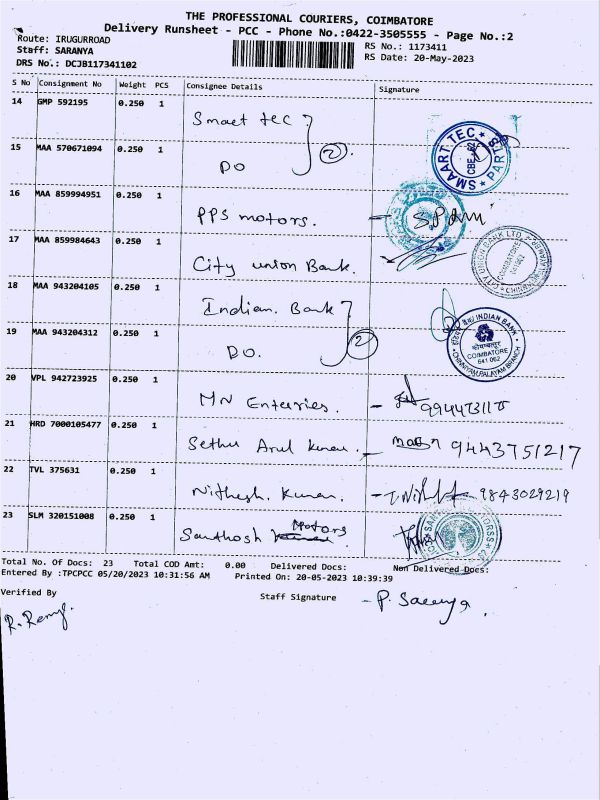 THE PROFESSIONAL COURIERS, COIMBATORE
Delivery Runsheet - PCC - Phone No.:0422-3505555 - Page No.:2
Route: IRUGURROAD
RS No.: 1173411
Staff: SARANYA
RS Date: 20-May-2023
DRS No.: DCJB117341102
S No Consignment No Weight PCS Consignee Details Signature
14 GMP 592195 0.250 1 Smaet tec
15 MAA 570671094 0.250 1 DO 2
SMAART TEC CBE-62
16 MAA 859994951 0.250 1 PPS motors.
17 MAA 859984643 0.250 1 City union Bank.
CITY UNION BANK LTD COIMBATORE 641062
18 MAA 943204105 0.250 1 Indian. Bank
19 MAA 943204312 0.250 1 DO. 2
INDIAN BANK कोयम्बत्तूर COIMBATORE 641 062 CHINNIYAMPALAYAM BRANCH
20 VPL 942723925 0.250 1 MN
21 HRD 7000105477 0.250 1 Sethu Arul Kumar. 9443751217
22 TVL 375631 0.250 1 Nithesh. Kumar. 9843029219
23 SLM 320151008 0.250 1 Santhosh Motors
Total No. Of Docs: 23 Total COD Amt: 0.00 Delivered Docs: Non Delivered Docs:
Entered By :TPCPCC 05/20/2023 10:31:56 AM Printed On: 20-05-2023 10:39:39
Verified By Staff Signature